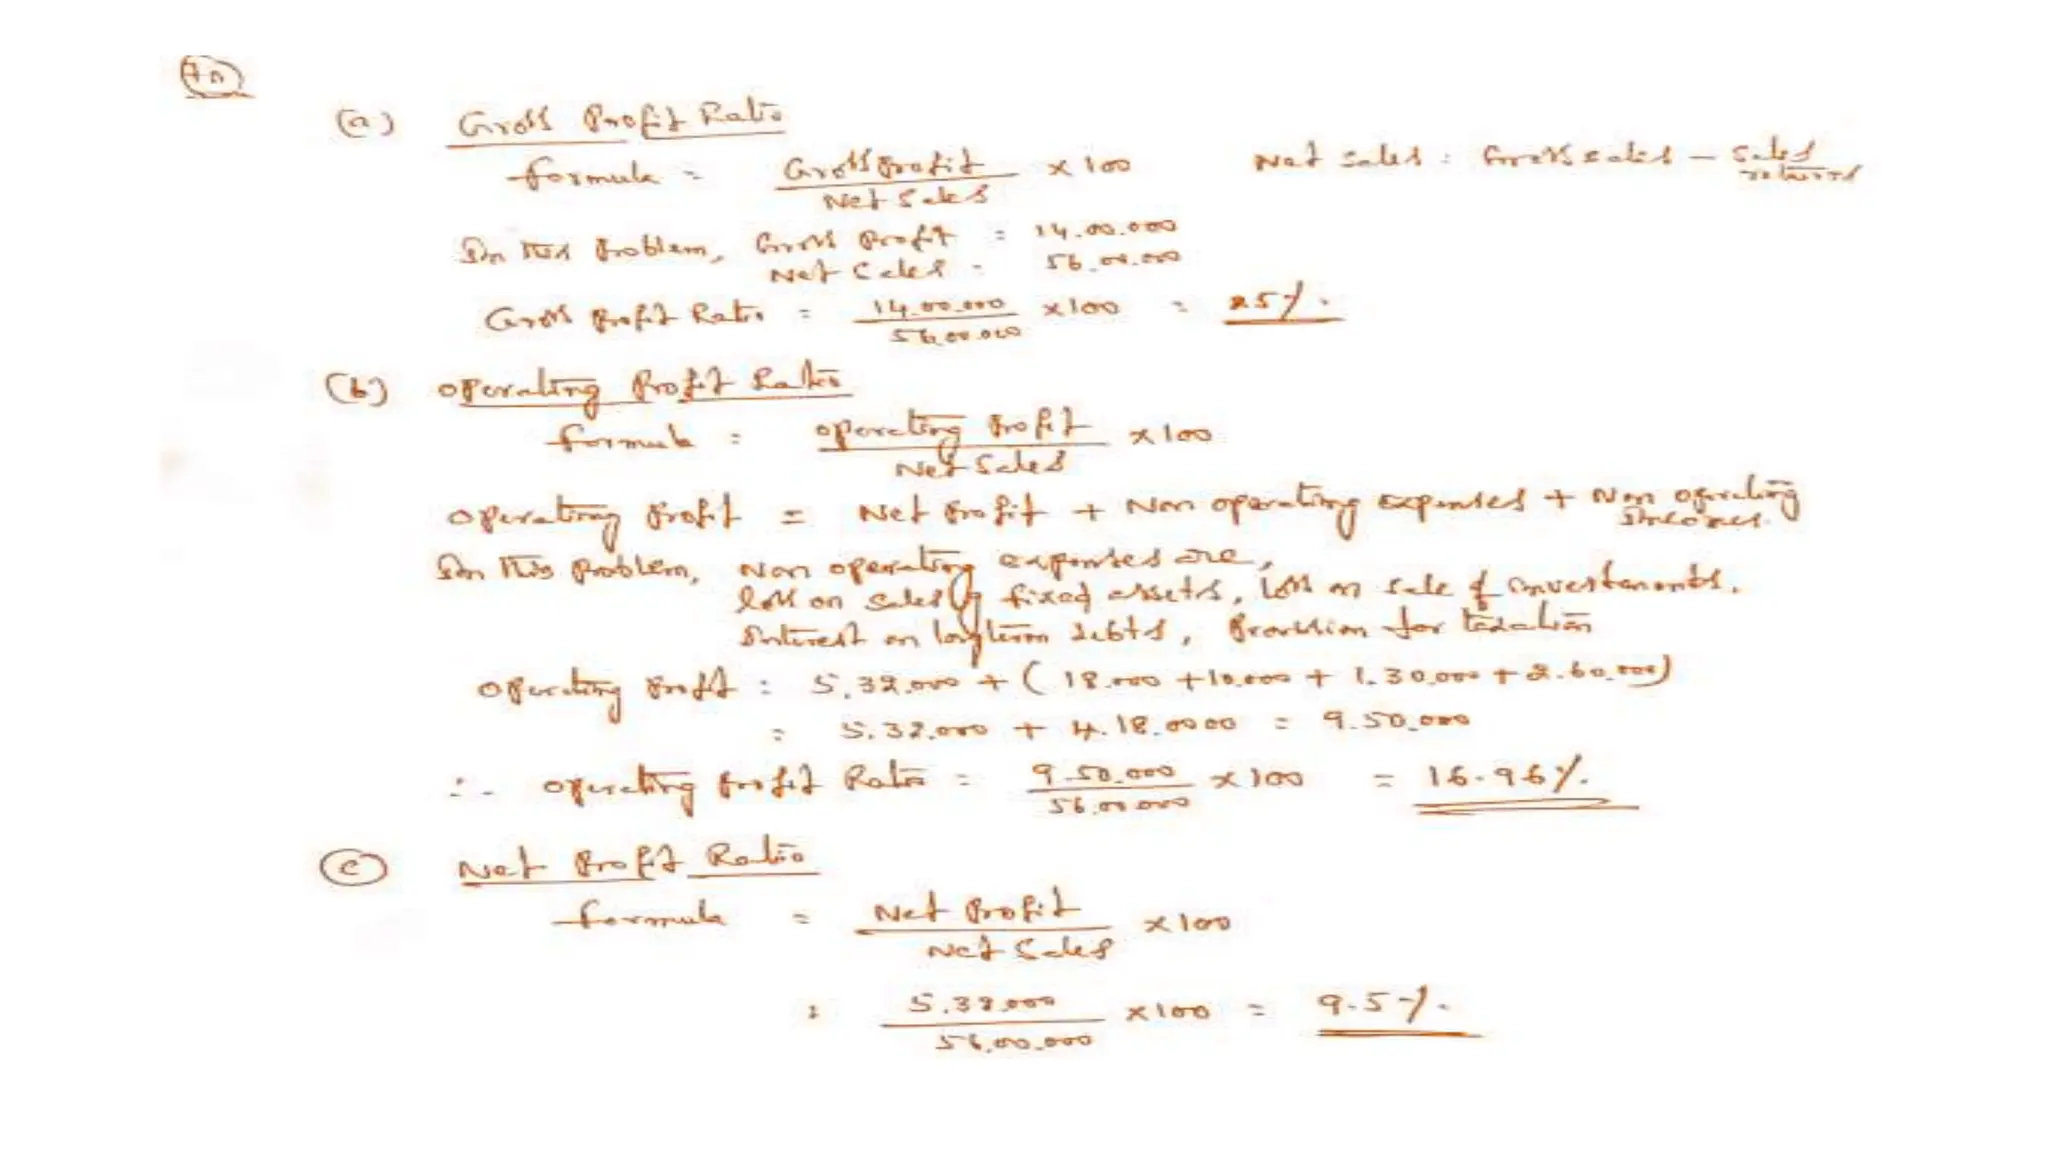 (a) Gross Profit Ratio
formula = Gross Profit / Net Sales × 100 Net Sales = Gross Sales – Sales returns
In this Problem, Gross Profit = 14,00,000
Net Sales = 56,00,000
Gross Profit Ratio = 14,00,000 / 56,00,000 × 100 = 25%.
(b) Operating Profit Ratio
formula = Operating Profit / Net Sales × 100
Operating Profit = Net Profit + Non operating expenses + Non operating Incomes.
In this problem, Non operating expenses are,
loss on sales of fixed assets, loss on sale of investments.
Interest on longterm debts, Provision for taxation
Operating Profit = 5,32,000 + (18,000 + 10,000 + 1,30,000 + 2,60,000)
= 5,32,000 + 4,18,0000 = 9,50,000
∴ Operating Profit Ratio = 9,50,000 / 56,00,000 × 100 = 16.96%.
(c) Net Profit Ratio
formula = Net Profit / Net Sales × 100
= 5,32,000 / 56,00,000 × 100 = 9.5%.